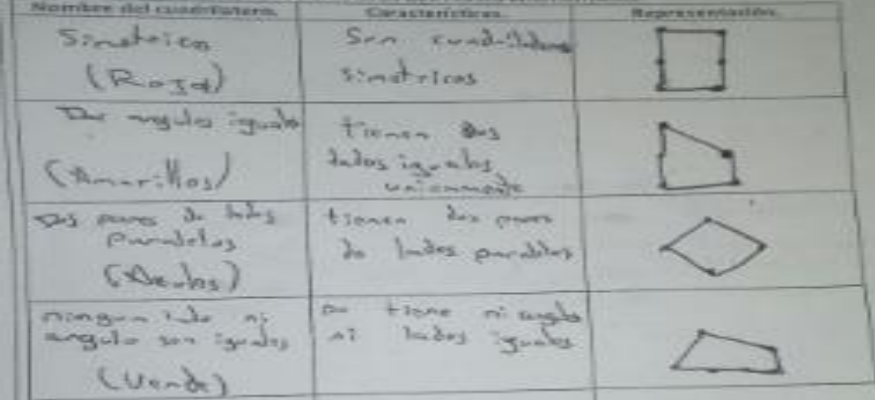 Nombre del cuadrilatero. Características. Representación.
Simetrico
(Rojo)
Son cuadrilateros
simetricos
Dos angulos iguales
(Amarillos)
tienen dos
lados iguales
unicamente
Dos pares de lados
paralelos
(Azules)
tienen dos pares
de lados paralelos
ningun lado ni
angulo son iguales
(Verde)
no tiene ni angulo
ni lados iguales